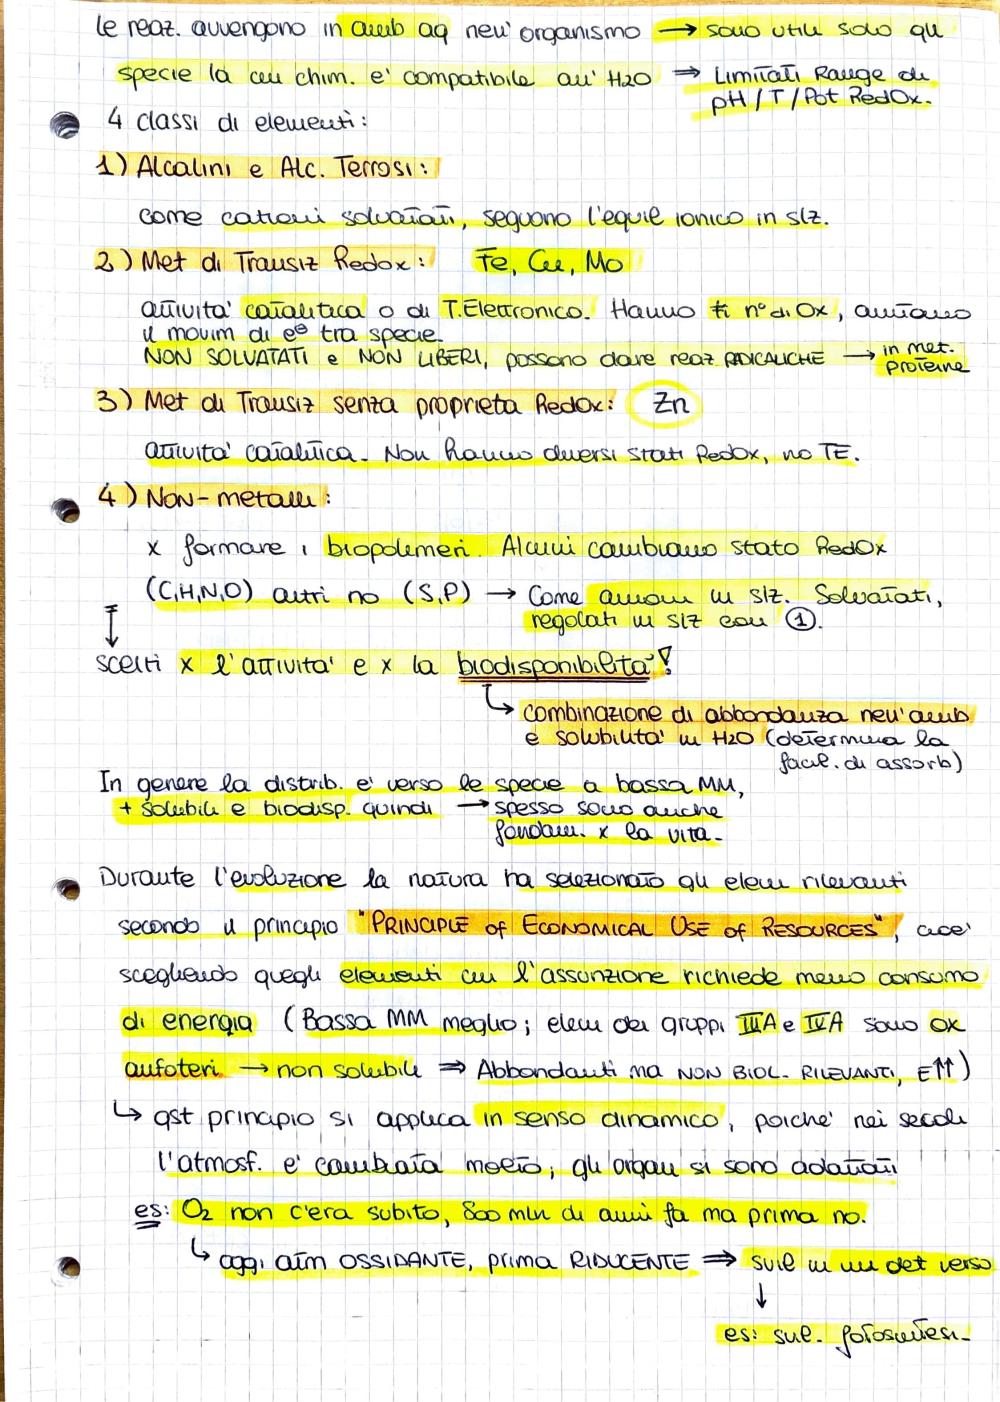 le reaz. avvengono in amb aq nell'organismo → sono utili solo gli
specie la cui chim. e' compatibile all' H2O ⇒ Limitati Range di
pH/T/Pot RedOx.
4 classi di elementi:
1) Alcalini e Alc. Terrosi:
come cationi solvatati, seguono l'equil ionico in slz.
2) Met di Transiz Redox: Fe, Cu, Mo
attivita' catalitica o di T.Elettronico. Hanno ≠i n° di Ox, aiutano
il movim di e⊖ tra specie.
NON SOLVATATI e NON LIBERI, possono dare reaz RADICALICHE → in met.
proteine
3) Met di Transiz senza proprieta Redox: Zn
attivita' catalitica. Non hanno diversi stati Redox, no TE.
4) Non-metalli:
x formare i biopolimeri. Alcuni cambiano stato RedOx
(C,H,N,O) altri no (S,P) → Come anioni in slz. Solvatati,
regolati in slz con ①.
scelti x l'attivita' e x la biodisponibilita'!
↳ combinazione di abbondanza nell'amb
e solubilita' in H2O (determina la
facil. di assorb)
In genere la distrib. e' verso le specie a bassa MM,
+ solubili e biodisp. quindi → spesso sono anche
fondam. x la vita.
Durante l'evoluzione la natura ha selezionato gli elem rilevanti
secondo il principio "PRINCIPLE of ECONOMICAL USE of RESOURCES", cioe'
scegliendo quegli elementi cui l'assunzione richiede meno consumo
di energia (Bassa MM meglio; elem dei gruppi IIIA e IVA sono ox
anfoteri → non solubili ⇒ Abbondanti ma NON BIOL. RILEVANTI, E↑↑)
↳ qst principio si applica in senso dinamico, poiche' nei secoli
l'atmosf. e' cambiata molto; gli organi si sono adattati
es: O2 non c'era subito, 800 mln di anni fa ma prima no.
↳ oggi atm OSSIDANTE, prima RIDUCENTE ⇒ svil in un det verso
↓
es: svil. fotosintesi.